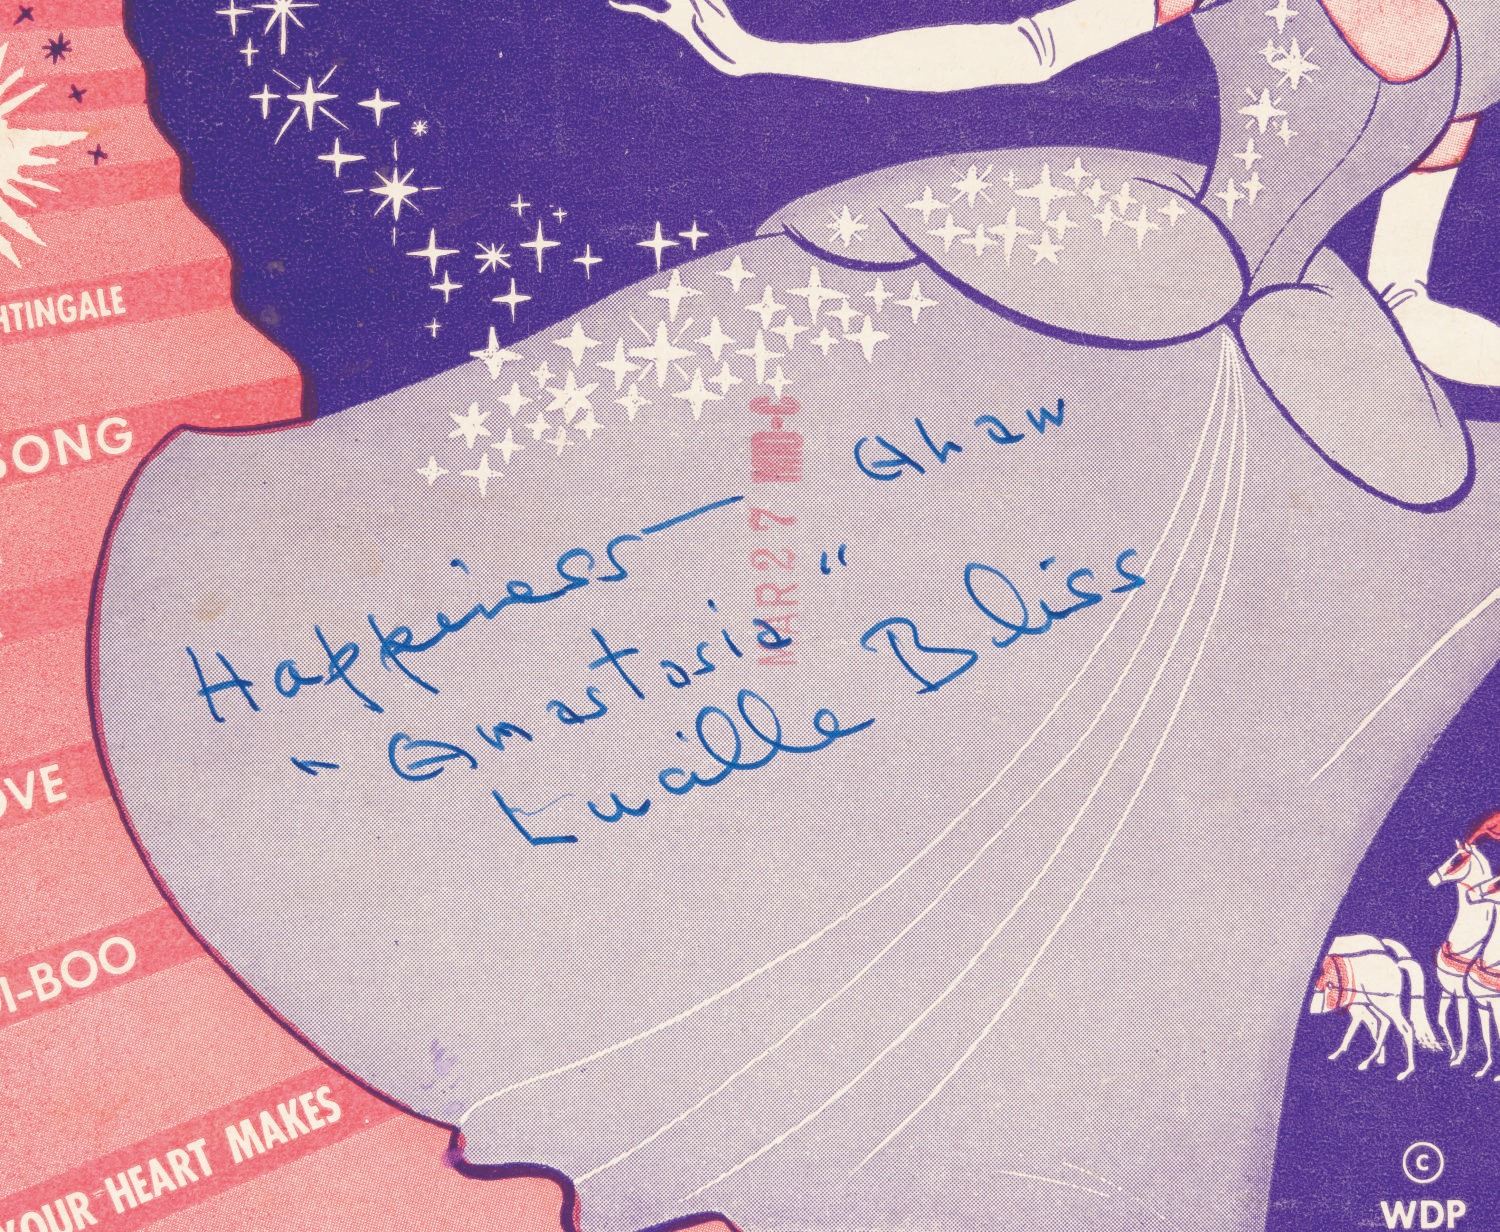 HTINGALE
SONG
OVE
DI-BOO
YOUR HEART MAKES
Happiness —
"Anastasia"
Lucille Bliss
MAR 27
©
WDP